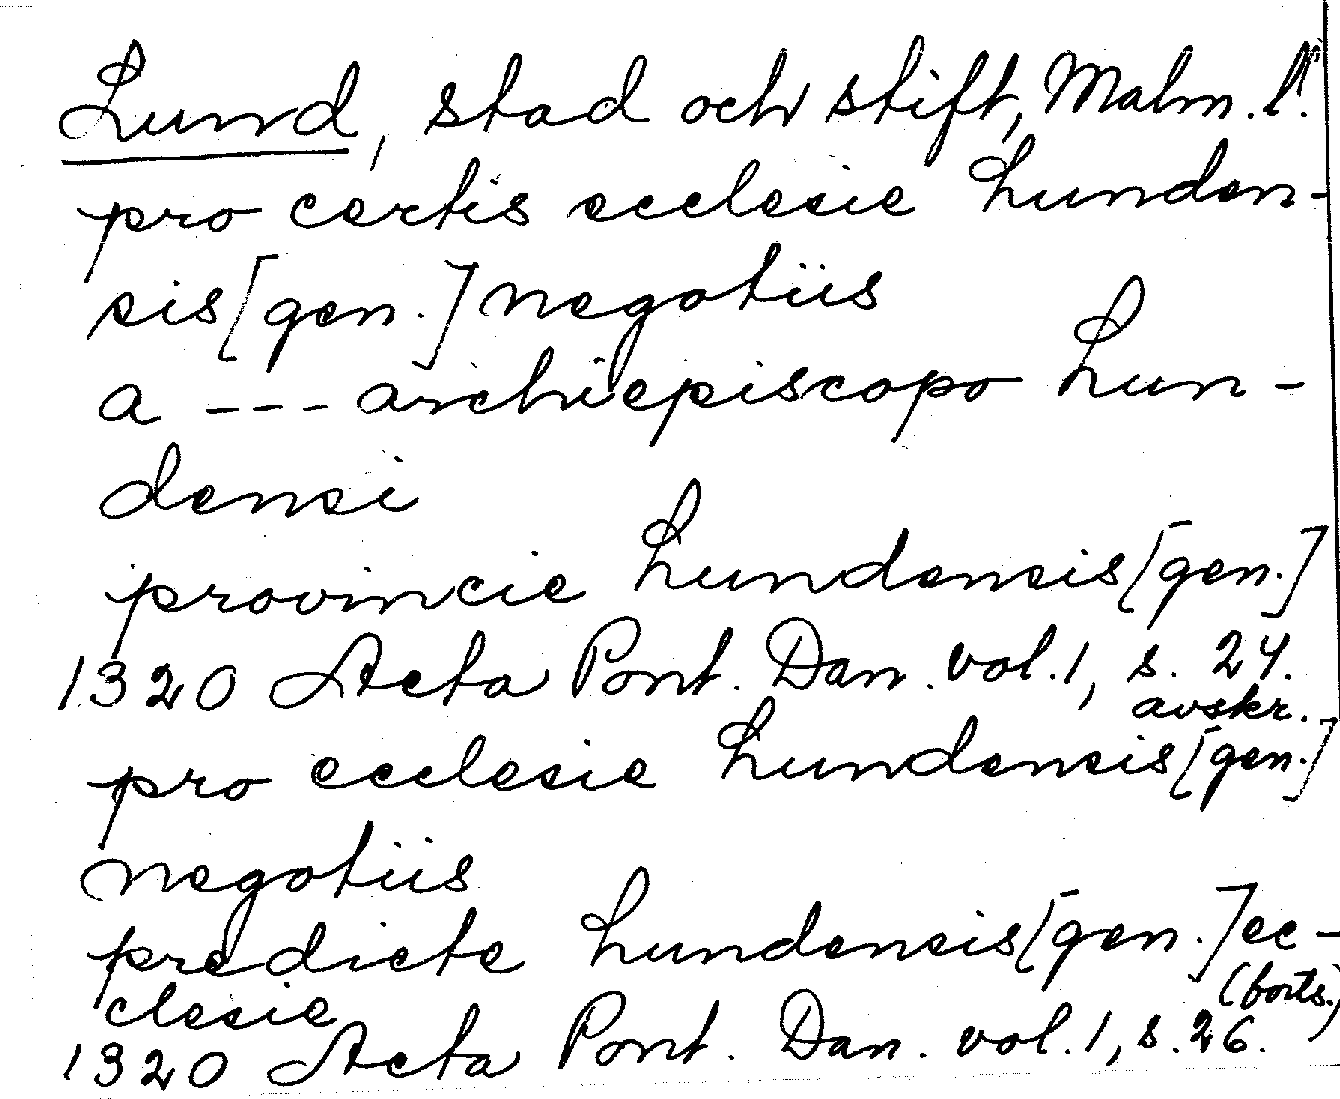 Lund, stad och stift, Malm. l.
pro certis ecclesie Lunden-
sis [gen.] negotiis
a --- archiepiscopo Lun-
densi
provincie Lundensis [gen.]
1320 Acta Pont. Dan. vol. 1, s. 24.
avskr.
pro ecclesie Lundensis [gen.]
negotiis
predicte Lundensis [gen.] ec-
clesie
(forts.)
1320 Acta Pont. Dan. vol. 1, s. 26.